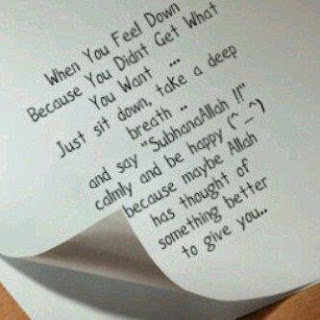 When You Feel Down
Because You Didnt Get What
You Want ...
Just sit down, take a deep
breath ..
and say "SubhanaAllah !!"
calmly and be happy (^_^)
because maybe Allah
has thought of
something better
to give you...